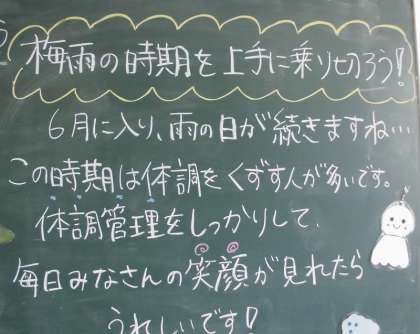 梅雨の時期を上手に乗り切ろう!
6月に入り、雨の日が続きますね…
この時期は体調をくずす人が多いです。
体調管理をしっかりして、
毎日みなさんの笑顔が見れたら
うれしいです!